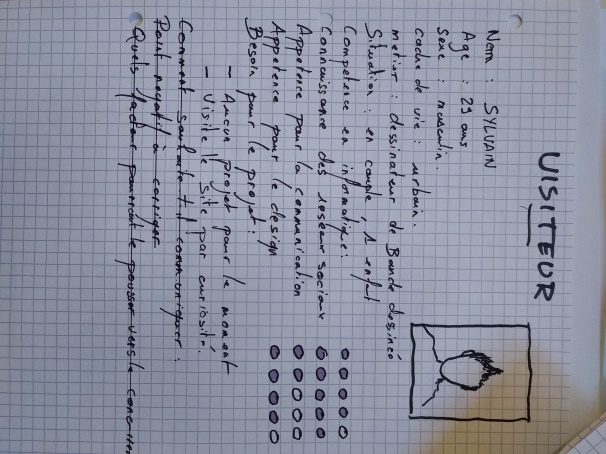 VISITEUR
Nom : SYLVAIN
Age : 29 ans
Sexe : masculin.
cadre de vie : urbain.
metier : dessinateur de Bande dessinée
Situation : en couple, 1 enfant
Compétence en informatique :
Connaissance des réseaux sociaux
Appétence pour la communication
Appétence pour le design
Besoin pour le projet :
- Aucun projet pour le moment
- Visite le site par curiosité.
Comment souhaite t il communiquer :
Point négatif à corriger
Quels facteur pourrait le pousser vers la